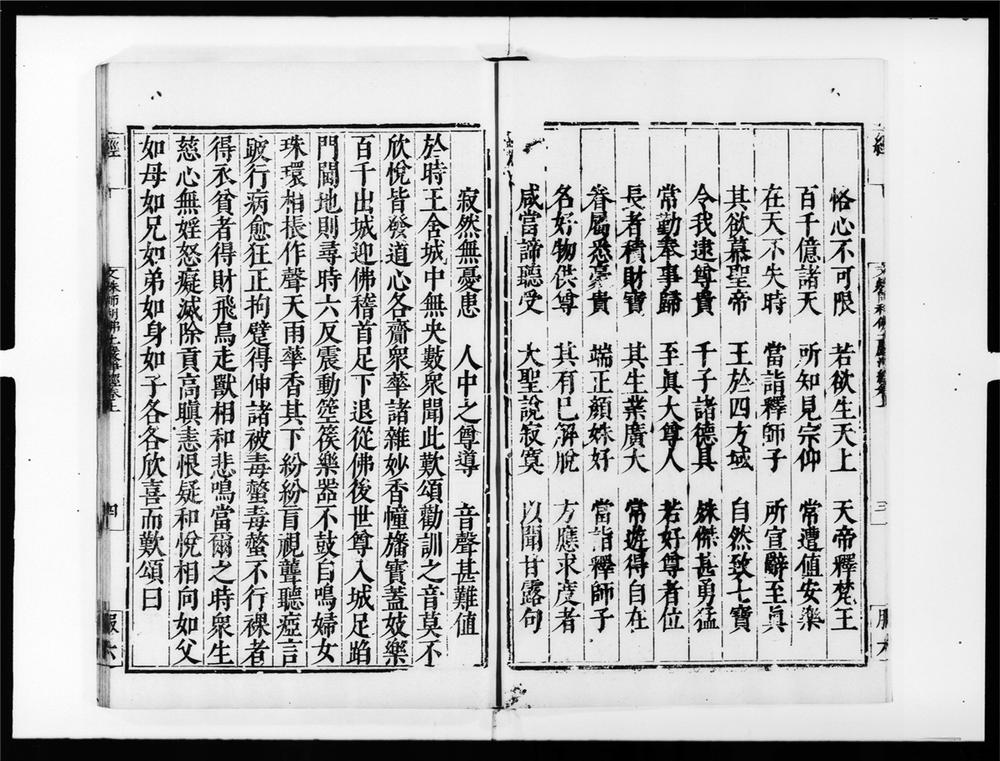 恪心不可限　若欲生天上　天帝釋梵王
百千億諸天　所知見宗仰　常遭值安樂
在天不失時　當詣釋師子　所宣辭至真
其欲慕聖帝　王於四方域　自然致七寶
令我逮尊貴　千子諸德具　殊傑甚勇猛
常勤奉事歸　至真大尊人　若好尊者位
長者積財寶　其生業廣大　常遊得自在
眷屬悉豪貴　端正顏姝好　當詣釋師子
名好物供尊　其有已解脫　方應求度者
咸當諦聽受　大聖說寂寞　以聞甘露句
寂然無憂患　人中之尊導　音聲甚難值
於時王舍城中無央數眾聞此歎頌勸訓之音莫不
欣悅皆發道心各齎眾華諸雜妙香幢旛寶蓋妓樂
百千出城迎佛稽首足下退從佛後世尊入城足蹈
門閫地則尋時六反震動箜篌樂器不鼓自鳴婦女
珠環相棖作聲天雨華香其下紛紛盲視聾聽瘂言
跛行病愈狂正拘躄得伸諸被毒螫毒螫不行裸者
得衣貧者得財飛鳥走獸相和悲鳴當爾之時眾生
慈心無婬怒癡滅除貢高瞋恚恨疑和悅相向如父
如母如兄如弟如身如子各各欣喜而歎頌曰
經
四
服六